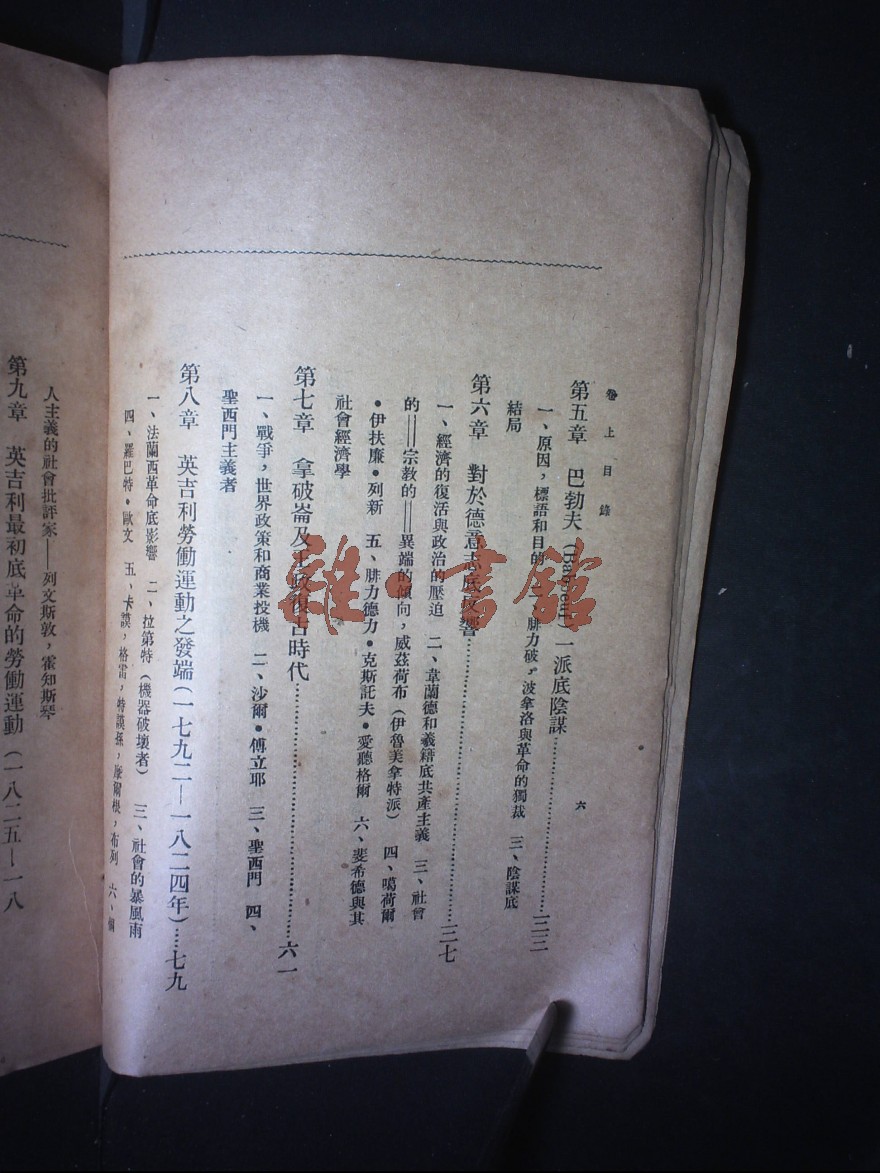 卷上目錄
六
第五章　巴勃夫（Baboeuf）一派底陰謀……二三
一、原因，標語和目的　二、腓力破，波拿洛與革命的獨裁　三、陰謀底
結局
第六章　對於德意志底反響……三七
一、經濟的復活與政治的壓迫　二、韋蘭德和羲籍底共產主義　三、社會
的——宗教的——異端的傾向，威茲荷布（伊魯美拿特派）　四、噶荷爾
•伊扶廉•列新　五、腓力德力•克斯託夫•愛聽格爾　六、斐希德與其
社會經濟學
第七章　拿破崙及王政復古時代……六一
一、戰爭，世界政策和商業投機　二、沙爾•傅立耶　三、聖西門　四、
聖西門主義者
第八章　英吉利勞働運動之發端（一七九二—一八二四年）……七九
一、法蘭西革命底影響　二、拉第特（機器破壞者）　三、社會的暴風雨
四、羅巴特•歐文　五、卡謨，格雷，特謨孫，摩爾根，布列　六、個
人主義的社會批評家——列文斯敦，霍知斯琴
第九章　英吉利最初底革命的勞働運動（一八二五—一八
雜·書館